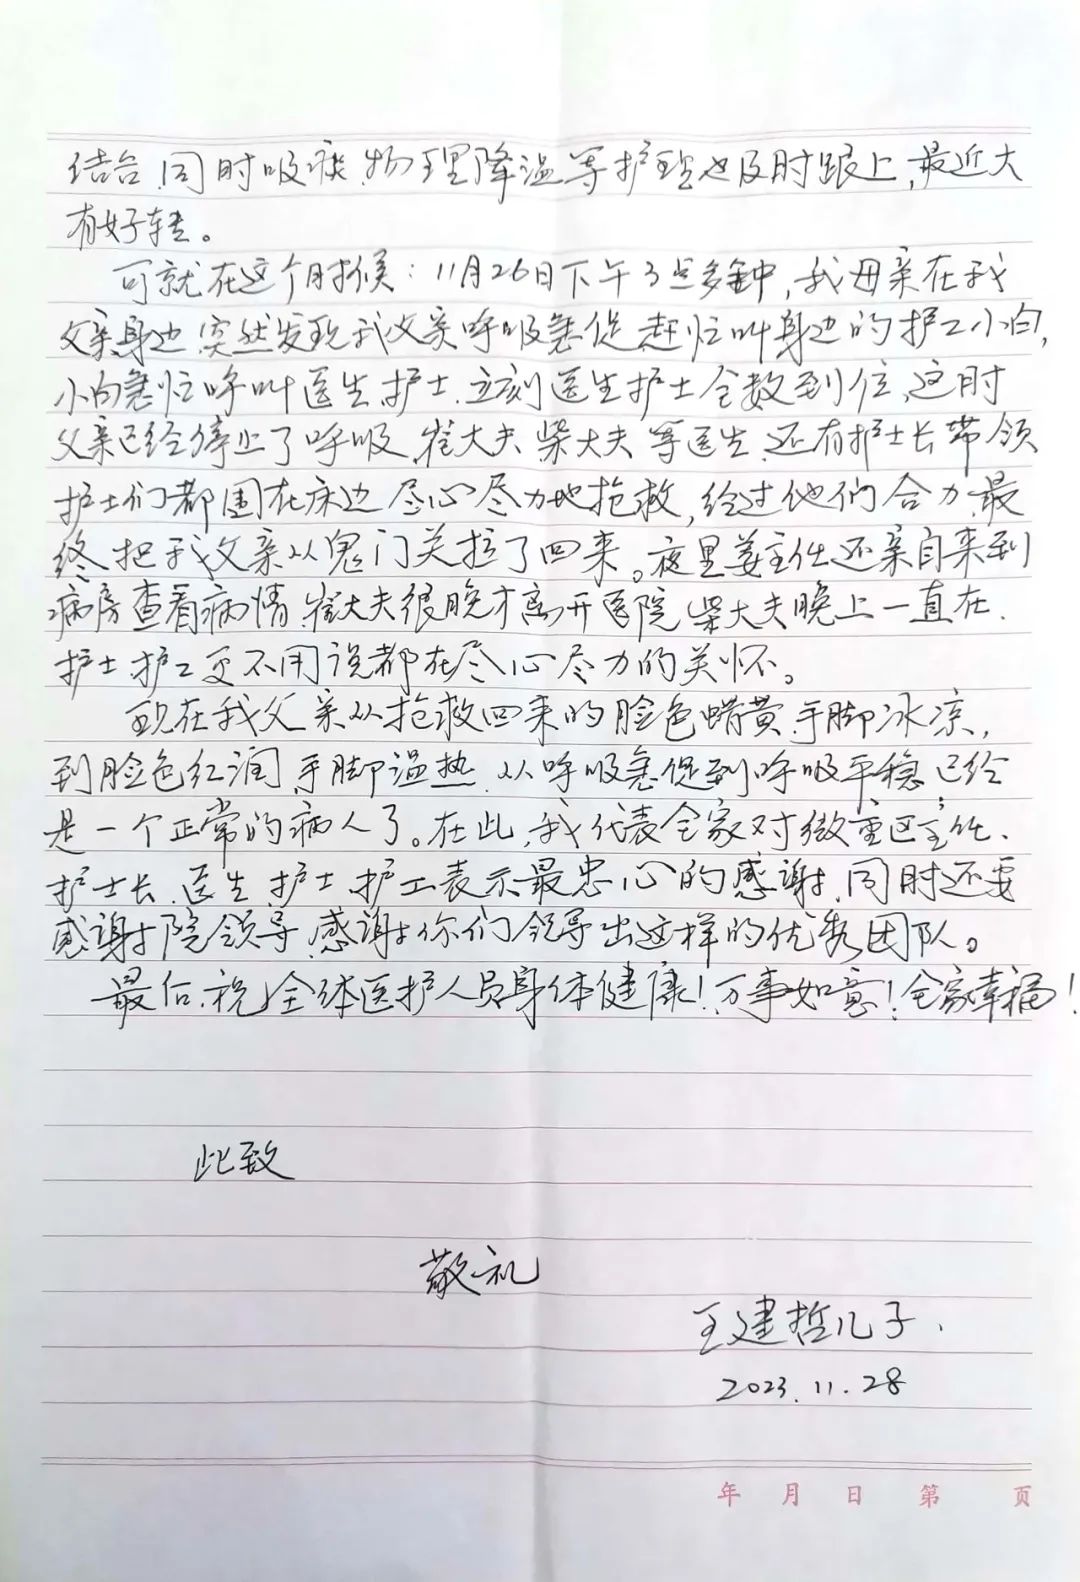 结合,同时吸痰,物理降温等护理也及时跟上,最近大
有好转。
可就在这个时候:11月26日下午3点多钟,我母亲在我
父亲身边,突然发现我父亲呼吸急促,赶忙叫身边的护工小白,
小白急忙呼叫医生护士,立刻医生护士全数到位,这时
父亲已经停止了呼吸,崔大夫、柴大夫等医生,还有护士长带领
护士们都围在床边尽心尽力地抢救,经过他們合力,最
终把我父亲从鬼门关拉了回来。夜里姜主任还亲自来到
病房查看病情,崔大夫很晚才离开医院,柴大夫晚上一直在.
护士.护工更不用说都在尽心尽力的关怀。
现在我父亲从抢救回来的脸色蜡黄,手脚冰凉,
到脸色红润,手脚温热,从呼吸急促到呼吸平稳,已经
是一个正常的病人了。在此,我代表全家对微重区主任、
护士长、医生、护士、护工表示最忠心的感谢,同时还要
感谢院领导,感谢你们领导出这样的优秀团队。
最后,祝全体医护人员身体健康!万事如意!全家幸福!
此致
敬礼
王建哲儿子.
2023.11.28
年 月 日 第 页